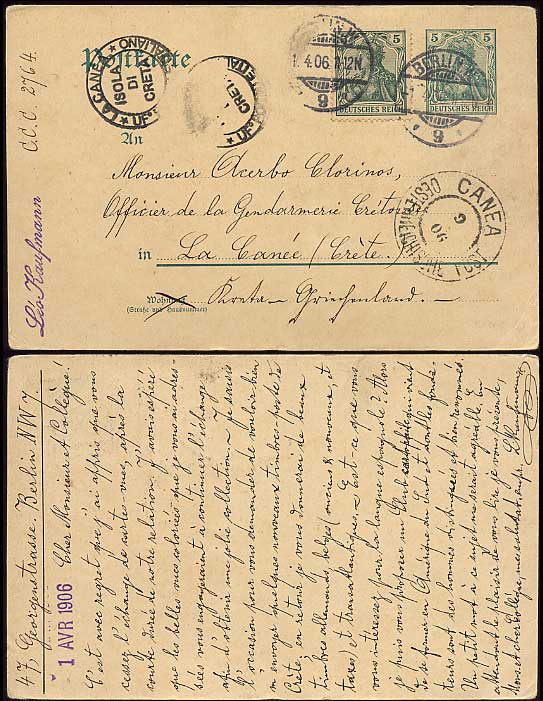 Postkarte
LA CANEA
ISOLA DI CRETA
1.4.06
9
5
5
DEUTSCHES REICH
DEUTSCHES REICH
BERLIN
9
An
Monsieur Acerbo Clorinos,
Officier de la Gendarmerie Crétoise
in La Canée (Crète).
Wohnung
(Straße und Hausnummer)
Kreta - Griechenland.
CANEA
OESTERREICHISCHE POST
6
06
C.C.C. 2764.
Léo Kaufmann
47, Georgenstrasse. Berlin NW 7.
1 AVR 1906
Cher Monsieur et Collègue!
C'est avec regret que j'ai appris que vous
cessez l'échange de cartes-vues, après la
courte durée de notre relation. J'avais espéré
que les belles vues coloriées que je vous ai adres-
sées vous engageraient à continuer l'échange
afin d'obtenir une jolie collection. - Je saisis
l'occasion pour vous demander de vouloir bien
m'envoyer quelques nouveaux timbres-poste de
Crète, en retour je vous donnerai de beaux
timbres allemands, belges (anciens & nouveaux, et
taxes) et transatlantiques. - Est-ce que vous
vous intéressez pour la langue espagnole? Alors
je puis vous proposer un Club qui vient
de se former en Amérique du Sud et dont les fonda-
teurs sont des hommes distingués et bien renommés.
Un petit mot à ce sujet me serait agréable. En
attendant le plaisir de vous lire je vous présente,
Mons. et cher Collègue, mes salutat. empr. L. Kaufmann